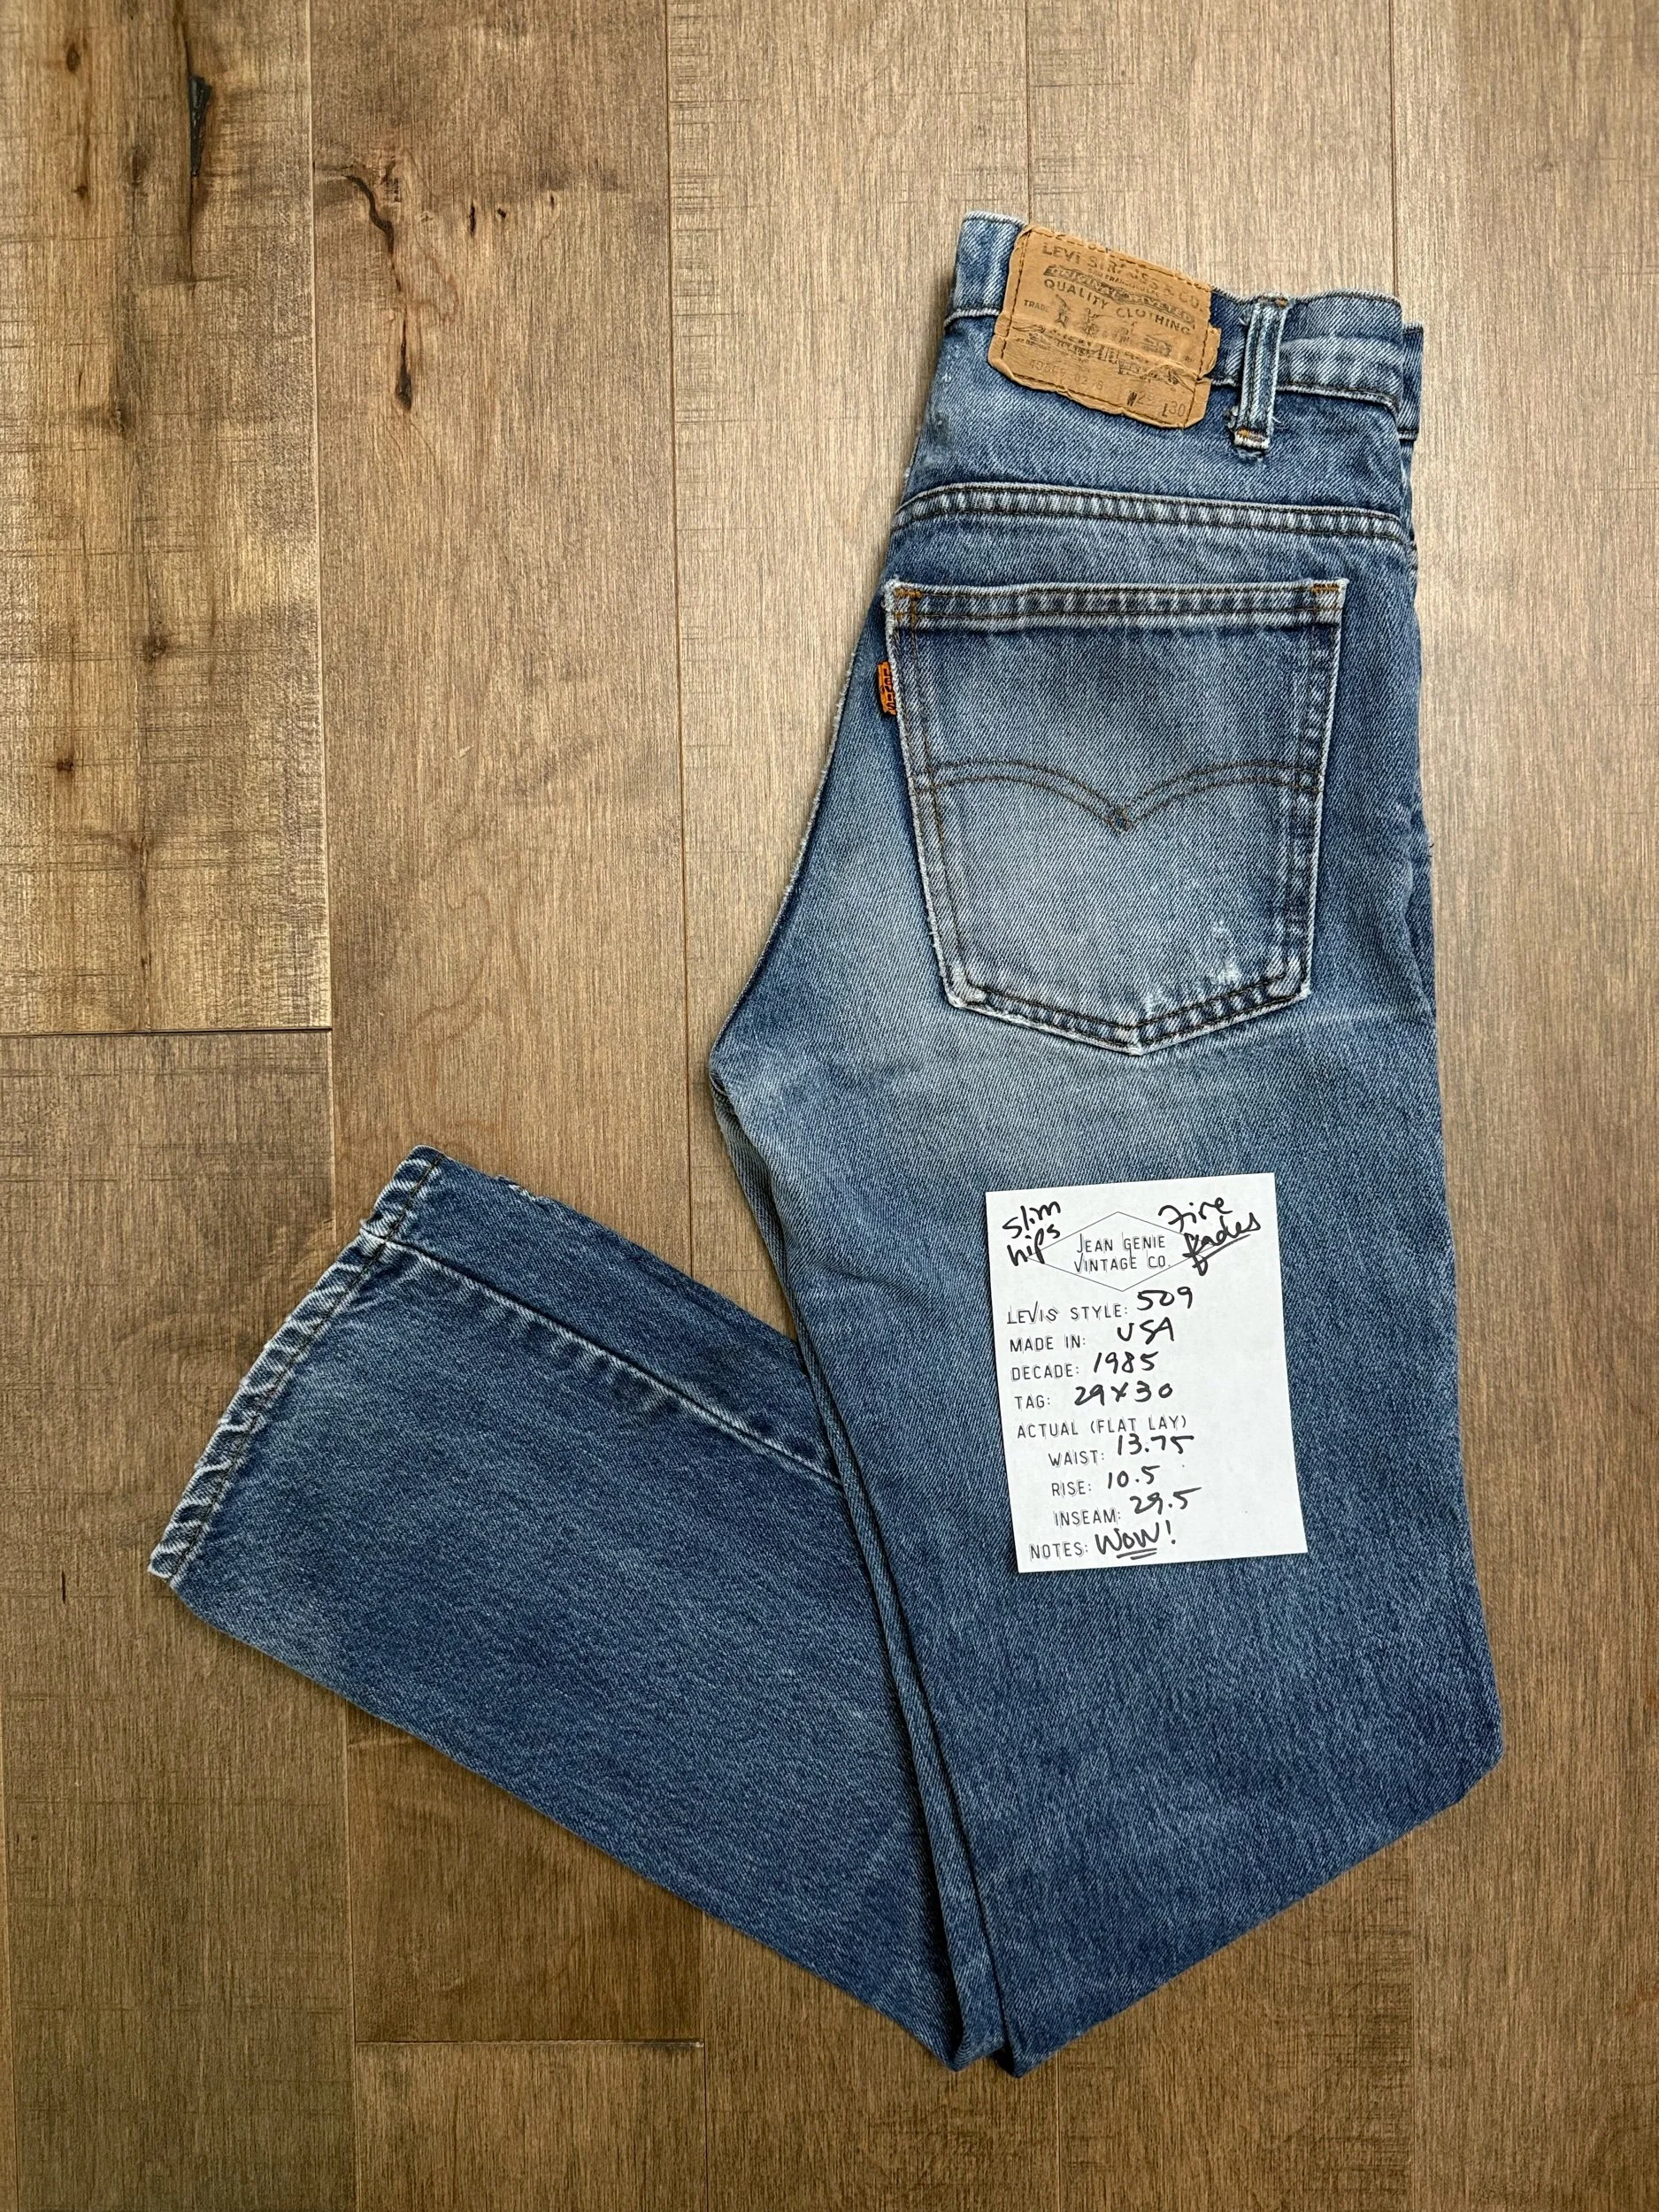 LEVI STRAUSS & CO.
QUALITY CLOTHING
TRADE
W29 L30
LEVI'S
Slim hips
Fire fades
JEAN GENIE
VINTAGE CO.
LEVIS STYLE: 509
MADE IN: USA
DECADE: 1985
TAG: 29x30
ACTUAL (FLAT LAY)
WAIST: 13.75
RISE: 10.5
INSEAM: 29.5
NOTES: WOW!